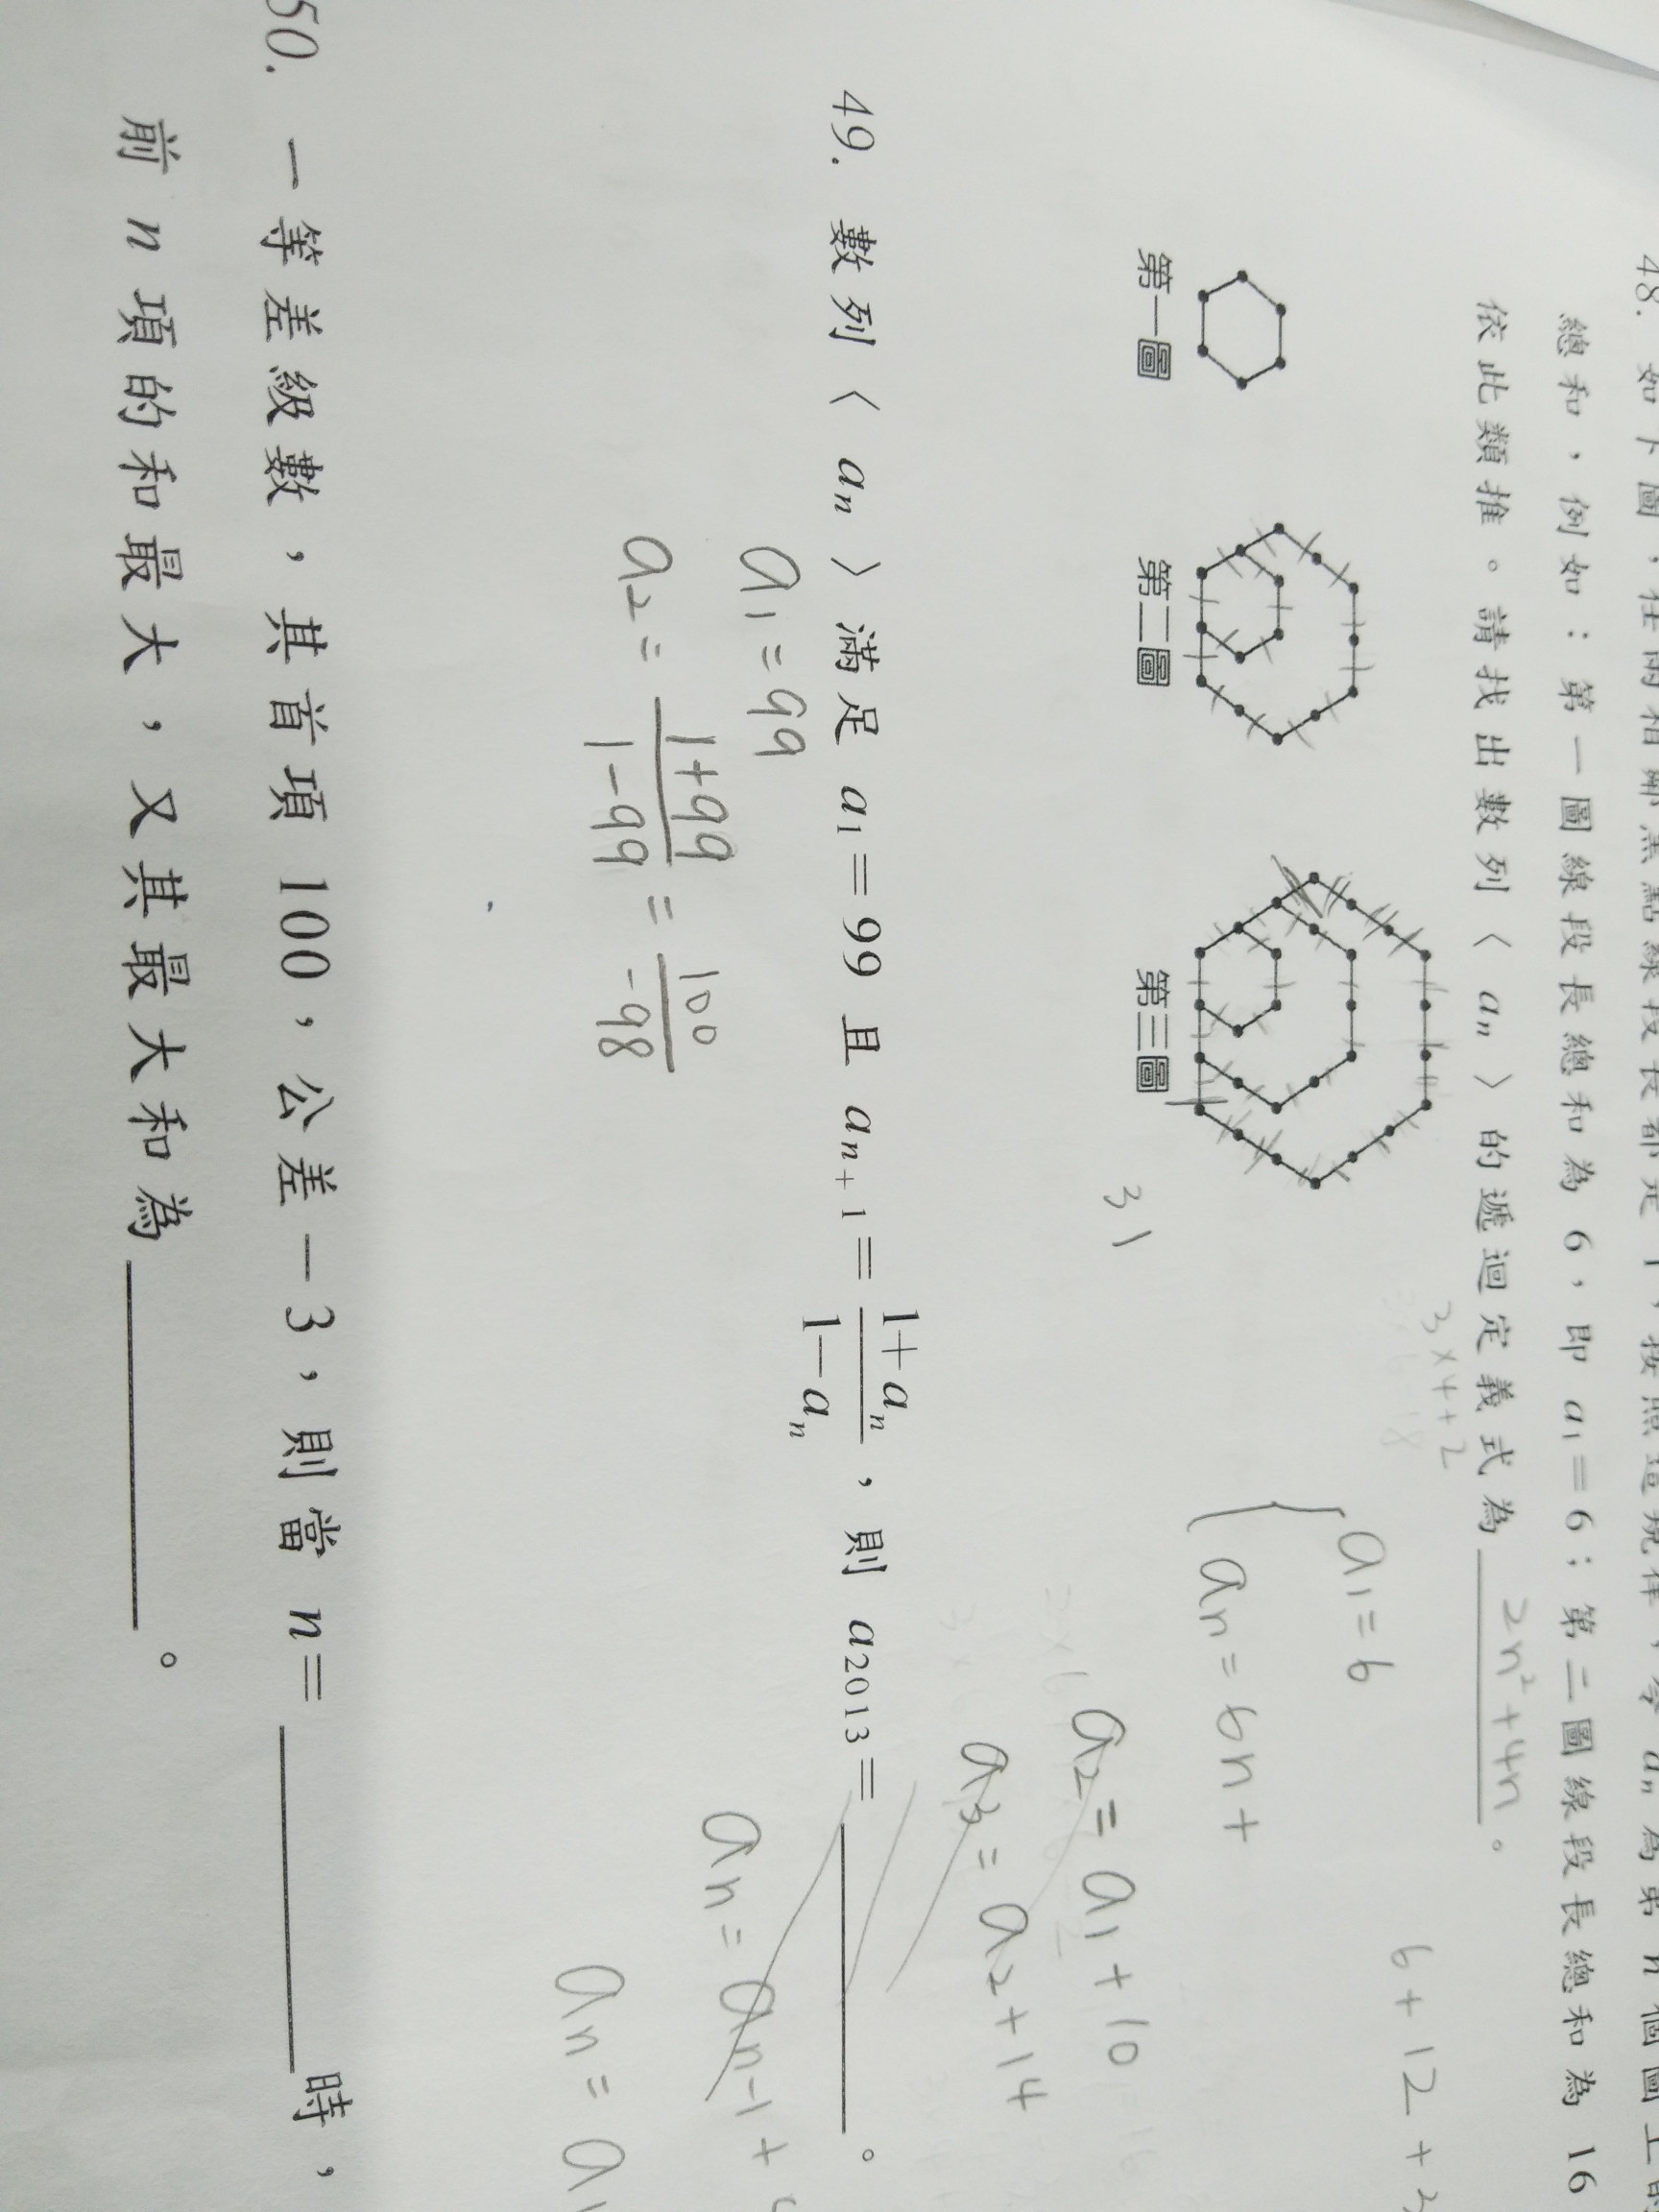 48. 如下圖，在兩相鄰黑點線段長都是 1，按照這規律，令 an 為第 n 個圖上的
總和，例如：第一圖線段長總和為 6，即 a1＝6；第二圖線段長總和為 16
依此類推。請找出數列〈 an 〉的遞迴定義式為 2n²+4n 。
3×4+2
6+12+
a1=6
an=6n+
第一圖 第二圖 第三圖
31
a2=a1+10
a3=a2+14
49. 數列〈 an 〉滿足 a1＝99 且 an+1＝1+an/1−an，則 a2013＝＿＿＿。
a1=99
a2=1+99/1-99=100/-98
an=an-1+
an=a
50. 一等差級數，其首項 100，公差－3，則當 n＝＿＿＿時，
前 n 項的和最大，又其最大和為＿＿＿。